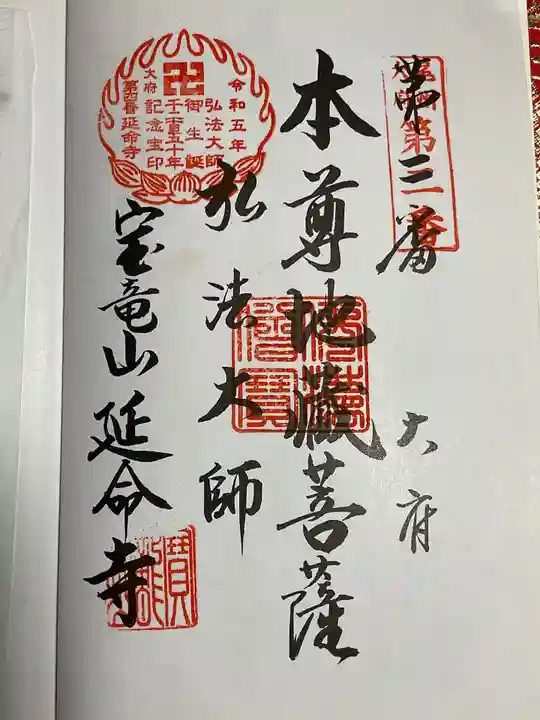 第三番
大府
本尊地蔵菩薩
弘法大師
宝竜山延命寺
令和五年
弘法大師
御生誕
千二百五十年
記念宝印
大府
延命寺
第三番
佛法僧寳